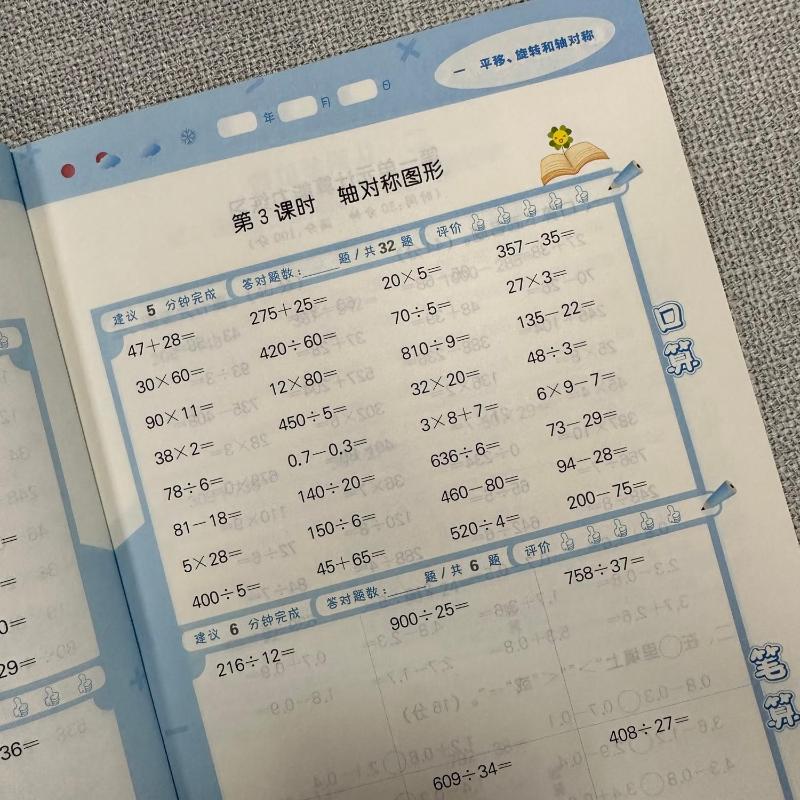 一 平移、旋转和轴对称
年 月 日
第 3 课时 轴对称图形
建议 5 分钟完成 答对题数：____题 / 共 32 题 评价
口算
47+28= 275+25= 20×5= 357-35=
30×60= 420÷60= 70÷5= 27×3=
90×11= 12×80= 810÷9= 135-22=
38×2= 450÷5= 32×20= 48÷3=
78÷6= 0.7-0.3= 3×8+7= 6×9-7=
81-18= 140÷20= 636÷6= 73-29=
5×28= 150÷6= 460-80= 94-28=
400÷5= 45+65= 520÷4= 200-75=
建议 6 分钟完成 答对题数：____题 / 共 6 题 评价
笔算
216÷12= 900÷25= 758÷37=
609÷34= 408÷27=
29=
36=